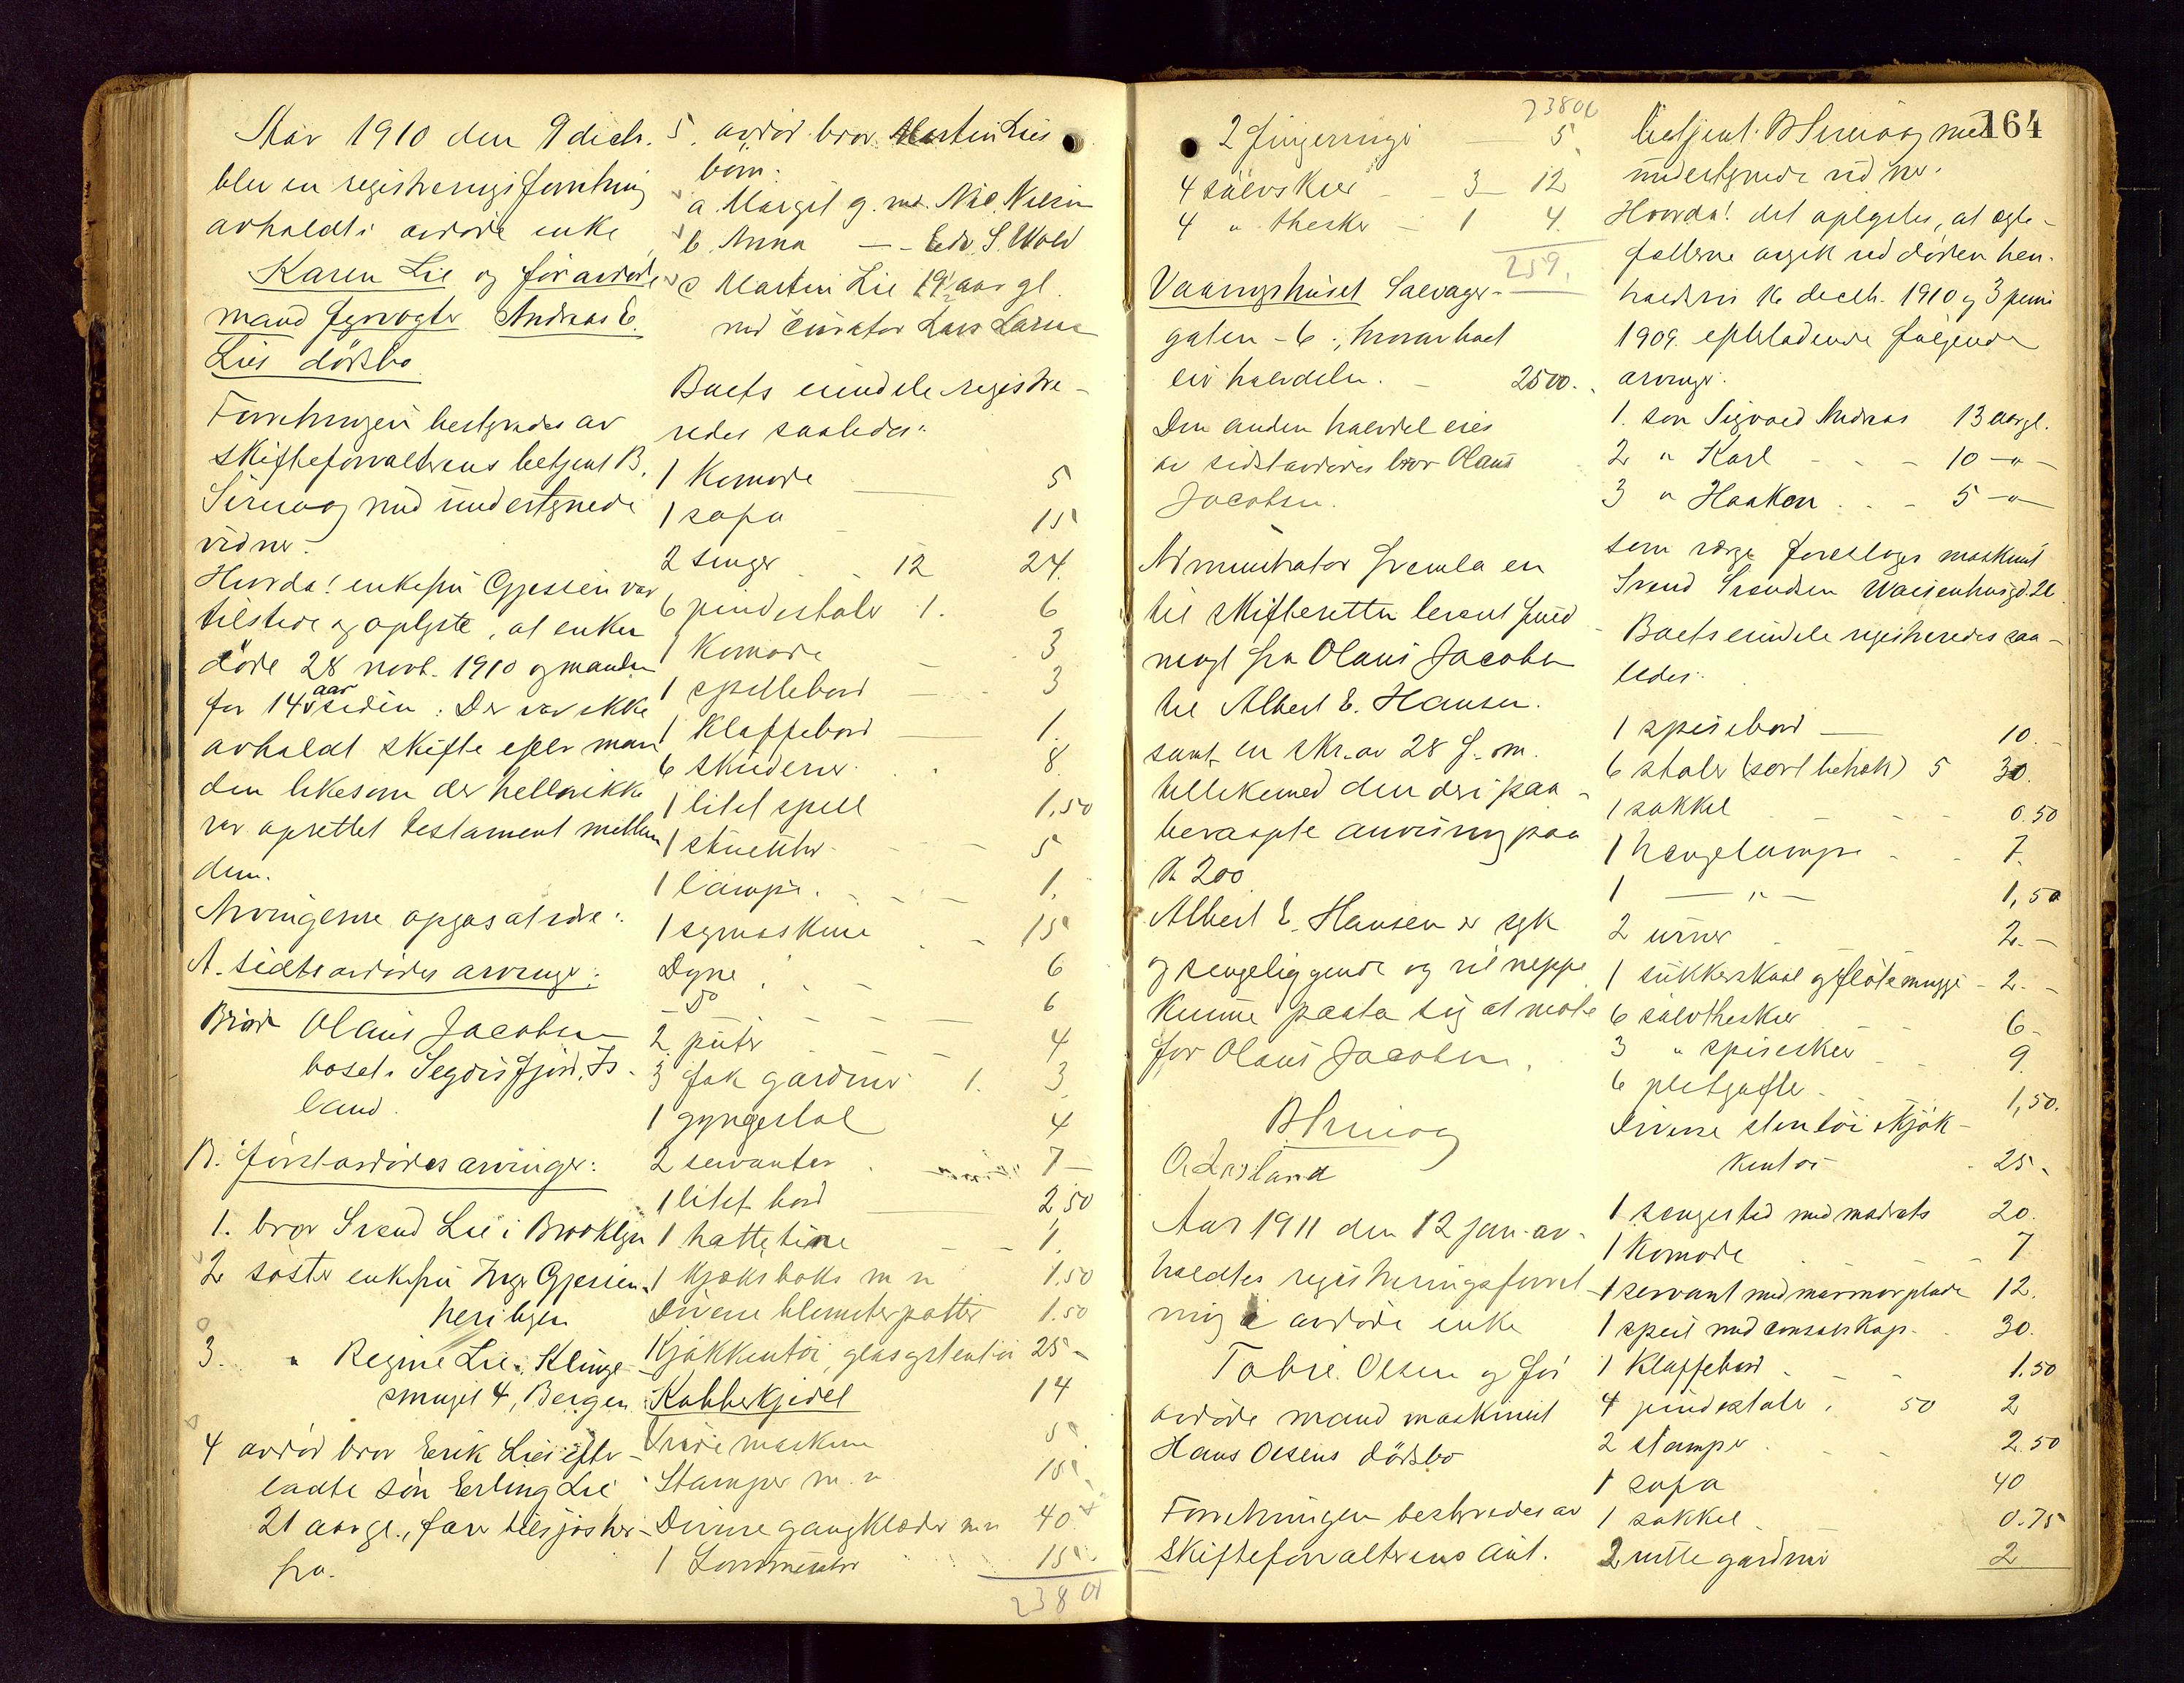 Aar 1910 den 9 decb.
blev en registreringsforretning
avholdt i avdøde enke
Karen Lie og før avdøde
mand fyrvogter Andreas E.
Lies dødsbo
Forretningen bestyredes av
skifteforvalterens betjent B.
Sirevaag med undertegnede
vidner.
Hvorda! enkefru Gjessen var
tilstede og oplyste, at enken
døde 28 novb. 1910 og manden
for 14 aar siden. Der var ikke
avholdt skifte efter man
den likesom der hellerikke
var oprettet testament mellem
dem.
Arvingerne opgas at være:
A. sidstavdødes arvinger:
Bror Olaus Jacobsen
bosat i Segdisfjord, Is-
land.
B. førstavdødes arvinger:
1. bror Svend Lie i Brooklyn
2 søster enkefru Inger Gjessen
her i byen
3. " Regine Lie, Klinge
smuget 4, Bergen
4 avdød bror Erik Lies efter-
ladte søn Erling Lie
21 aar gl., før tilsjøs her-
fra.
5. avdød bror Martin Lies
børn:
a. Margit g. m. Nils Nilsen
b. Anna — - Edv. S. Wold
c Martin Lie 19½ aar gl.
med curator Lars Larsen
Boets eiendele registre-
redes saaledes:
1 Komode 5
1 sofa 15
2 senger 12 24.
6 pindestoler 1. 6
1 Komode 3
1 spillebord 3
1 Klaffebord 1.
6 skilderier 8
1 litet speil 1,50
1 stueuhr 5
1 lampe. 1.
1 symaskine 15
Dyne 6
- Do 6
2 puter 4
3 fak gardiner 1. 3
1 gyngestol 4
2 servanter 7 —
1 litet bord 2,50
1 hattetine 1.
1 Kjøksboks m m 1.50
Diverse blomsterpotter 1.50
Kjøkkentøi, glas og stentøi 25 -
Kobberkjedel 14
Vridemaskine 5.
Stamper m. m 15.
Diverse gangklæder m m 40.
1 Lommeuhr 15.
238 00
238 00
2 fingeringe 5
4 sølvskeer 3 — 12
4 " theskeer 1 4.
259.
Vaaningshuset Salvager-
gaten - 6; hvorav boet
eier halvdelen. 2500.
Den anden halvdel eies
av sidstavdødes bror Olaus
Jacobsen.
Administrator fremla en
til skifteretten leveret fuld
magt fra Olaus Jacobsen
til Albert E. Hansen.
samt en skr. av 28 f. m.
tillikemed den deri paa-
beraapte anvisning paa
Kr 200
Albert E. Hansen er syk
og sengeliggende og vil neppe
Kunne paata sig at møte
for Olaus Jacobsen.
BSirevaag
Aar 1911 den 12 jan. av-
holdtes registreringsforret-
ning i avdøde enke
Tobie Olsen og før
avdøde mand maskinist
Hans Olsens dødsbo
Forretningen bestyredes av
skifteforvalterens aut.
164
betjent BSirevaag med
undertegnede vidner.
Hvorda! det oplystes, at egte-
fællerne avgik ved døden hen-
holdsvis 16 decb. 1910 og 3 juni
1909. efterladende følgende
arvinger:
1. søn Sigvald Andreas 13 aar gl.
2 " Karl - - - 10 - " -
3 " Haakon . . - 5 - " -
som verge foreslages maskinist
Svend Svendsen Waisenhusgd. 26
Boets eiendele registreredes saa-
ledes:
1 spisebord — 10.-
6 stoler (sort betræk) 5 30.
1 sokkel 0.50
1 hengelampe 7.
1 — " — 1,50
2 urner 2.-
1 sukkerskaal og fløtemugge - 2. -
6 sølvtheskeer 6-
3 " spiseskeer 9.
6 pletgafler 1,50.
Diverse stentøi Kjøk-
kentøi 25.
1 sengested med madrats 20.
1 Komode 7
1 servant med marmorplade 12.
1 speil med consolskap. 30.
1 Klaffebord 1.50
4 pindestoler. 50 2
2 stamper 2.50
1 sofa 40
1 sokkel 0.75
2 rullegardiner 2